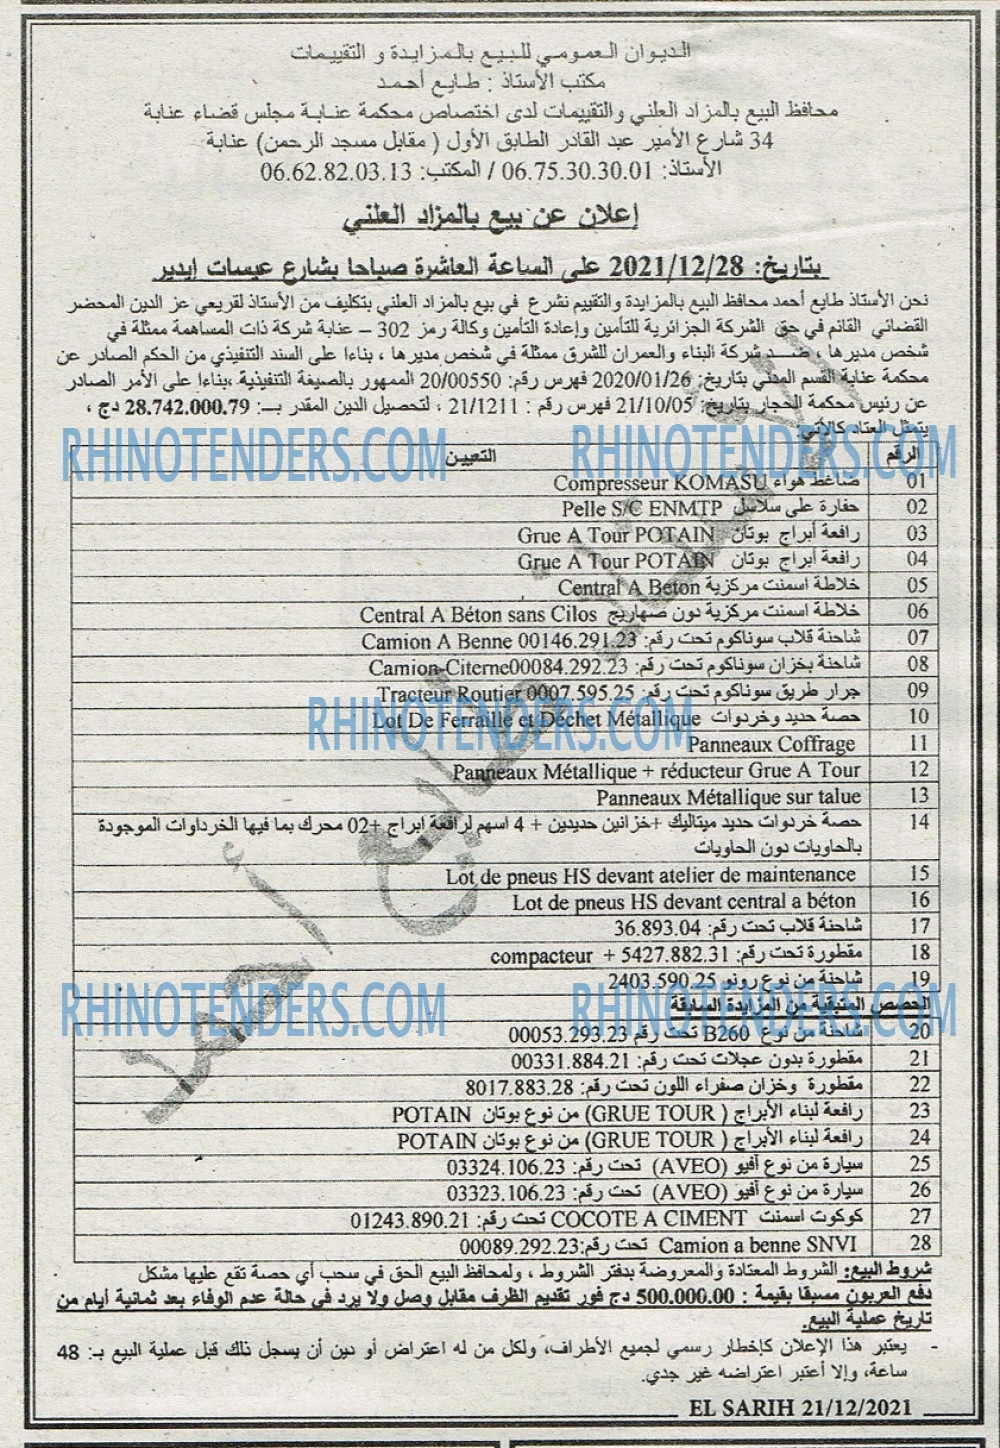 الديوان العمومي للبيع بالمزايدة و التقييمات
مكتب الأستاذ : طايع أحمد
محافظ البيع بالمزاد العلني والتقييمات لدى اختصاص محكمة عنابة مجلس قضاء عنابة
34 شارع الأمير عبد القادر الطابق الأول ( مقابل مسجد الرحمن) عنابة
الأستاذ: 06.75.30.30.01 / المكتب: 06.62.82.03.13
إعلان عن بيع بالمزاد العلني
بتاريخ: 2021/12/28 على الساعة العاشرة صباحا بشارع عيسات ايدير
نحن الأستاذ طايع أحمد محافظ البيع بالمزايدة والتقييم نشرع في بيع بالمزاد العلني بتكليف من الأستاذ لقريعي عز الدين المحضر
القضائي القائم في حق الشركة الجزائرية للتأمين وإعادة التأمين وكالة رمز 302 – عنابة شركة ذات المساهمة ممثلة في
شخص مديرها ، ضـــد شركة البناء والعمران للشرق ممثلة في شخص مديرها ، بناءا على السند التنفيذي من الحكم الصادر عن
محكمة عنابة القسم المدني بتاريخ: 2020/01/26 فهرس رقم: 20/00550 الممهور بالصيغة التنفيذية ،بناءا على الأمر الصادر
عن رئيس محكمة الحجار بتاريخ: 21/10/05 فهرس رقم : 21/1211 ، لتحصيل الدين المقدر بـــ: 28.742.000.79 دج ،
يتمثل العتاد كالأتي:
RHINOTENDERS.COM RHINOTENDERS.COM
الرقم التعيين
01 ضاغط هواء Compresseur KOMASU
02 حفارة على سلاسل Pelle S/C ENMTP
03 رافعة أبراج بوتان Grue A Tour POTAIN
04 رافعة أبراج بوتان Grue A Tour POTAIN
05 خلاطة اسمنت مركزية Central A Beton
06 خلاطة اسمنت مركزية دون صهاريج Central A Béton sans Cilos
07 شاحنة قلاب سوناكوم تحت رقم: Camion A Benne 00146.291.23
08 شاحنة بخزان سوناكوم تحت رقم: Camion-Citerne00084.292.23
09 جرار طريق سوناكوم تحت رقم: Tracteur Routier 0007.595.25
10 حصة حديد وخردوات Lot De Ferraille et Déchet Métallique
RHINOTENDERS.COM
11 Panneaux Coffrage
12 Panneaux Métallique + réducteur Grue A Tour
13 Panneaux Métallique sur talue
14 حصة خردوات حديد ميتاليك +خزانين حديدين + 4 اسهم لرافعة ابراج +02 محرك بما فيها الخرداوات الموجودة
بالحاويات دون الحاويات
15 Lot de pneus HS devant atelier de maintenance
16 Lot de pneus HS devant central a béton
17 شاحنة قلاب تحت رقم: 36.893.04
18 مقطورة تحت رقم: 5427.882.31 + compacteur
19 شاحنة من نوع رونو 2403.590.25
RHINOTENDERS.COM RHINOTENDERS.COM
الحصص المتبقية من المزايدة السابقة
20 شاحنة من نوع B260 تحت رقم 00053.293.23
21 مقطورة بدون عجلات تحت رقم: 00331.884.21
22 مقطورة وخزان صفراء اللون تحت رقم: 8017.883.28
23 رافعة لبناء الأبراج ( GRUE TOUR) من نوع بوتان POTAIN
24 رافعة لبناء الأبراج ( GRUE TOUR) من نوع بوتان POTAIN
25 سيارة من نوع آفيو (AVEO) تحت رقم: 03324.106.23
26 سيارة من نوع آفيو (AVEO) تحت رقم: 03323.106.23
27 كوكوت اسمنت COCOTE A CIMENT تحت رقم: 01243.890.21
28 Camion a benne SNVI تحت رقم:00089.292.23
شروط البيع: الشروط المعتادة والمعروضة بدفتر الشروط ، ولمحافظ البيع الحق في سحب أي حصة تقع عليها مشكل
دفع العربون مسبقا بقيمة : 500.000.00 دج فور تقديم الظرف مقابل وصل ولا يرد في حالة عدم الوفاء بعد ثمانية أيام من
تاريخ عملية البيع.
- يعتبر هذا الإعلان كإخطار رسمي لجميع الأطراف، ولكل من له اعتراض أو دين أن يسجل ذلك قبل عملية البيع بـ: 48
ساعة، وإلا أعتبر اعتراضه غير جدي.
EL SARIH 21/12/2021
الأستاذ طايع أحمد